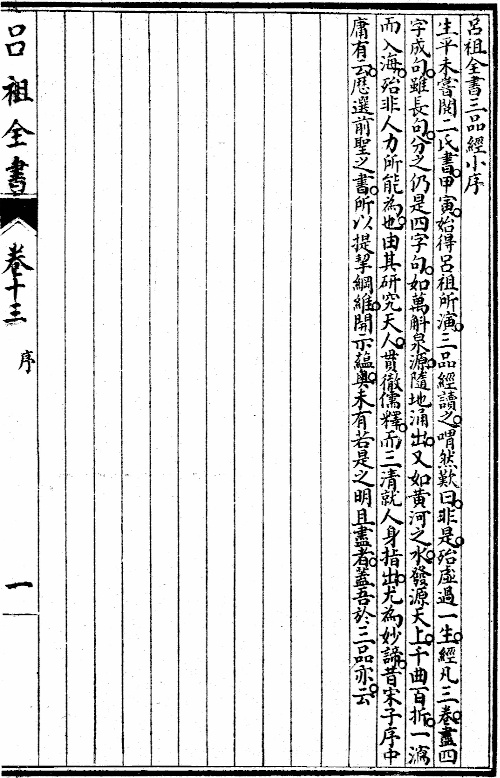 呂祖全書三品經小序
生平未嘗閱二氏書甲寅始得呂祖所演三品經讀之喟然歎曰非是殆虛過一生經凡三卷盡四
字成句雖長句分之仍是四字句如萬斛泉源隨地涌出又如黄河之水發源天上千曲百折一瀉
而入海殆非人力所能為也由其研究天人貫徹儒釋而三清就人身指出尤為妙諦昔宋子序中
庸有云歴選前聖之書所以提挈綱維開示蘊奥未有若是之明且盡者蓋吾於三品亦云
呂祖全書
卷十三
序
一